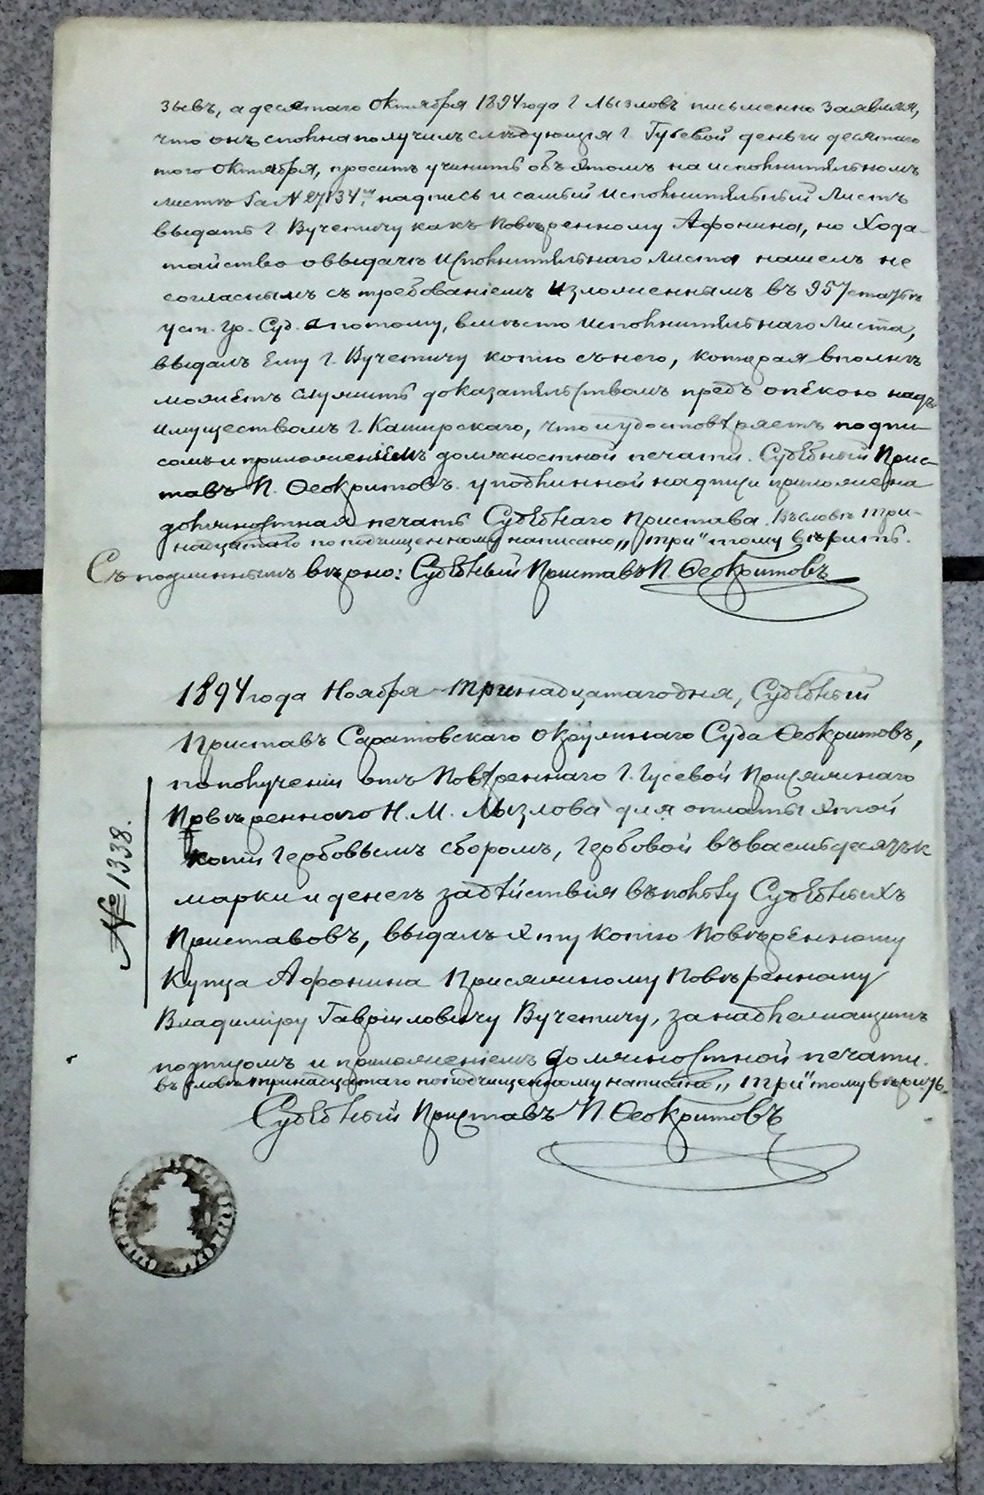 зывъ, а десятаго Октября 1894 года Г. Мызловъ письменно заявляя,
что онъ сполна получилъ слѣдующія Г. Гусевой деньги десятаго
того Октября, просилъ учинить объ этомъ на исполнительномъ
листѣ за № надпись и самый Исполнительный Листъ
выдать Г. Вучетичу какъ повѣренному Афонина, но Хода-
тайство о выдачѣ Исполнительнаго листа нашелъ не
согласнымъ съ требованіемъ изложеннымъ въ 957 статьѣ
уст. гр. Суд. а потому, вмѣсто Исполнительнаго Листа,
выдалъ Ему Г. Вучетичу копію съ него, которая вполнѣ
можетъ служить доказательствомъ предъ опекою надъ
имуществомъ Г. Каширскаго, что и удостовѣряетъ подпи-
сомъ и приложеніемъ должностной печати. Судебный Прис-
тавъ П. Ѳеокритовъ. у подлинной надписи приложена
должностная печать Судебнаго Пристава. Въ словѣ три-
надцатаго по подчищенному написано „три" тому вѣрить.
Съ подлиннымъ вѣрно: Судебный Приставъ П. Ѳеокритовъ
1894 года Ноября тринадцатаго дня, Судебный
Приставъ Саратовскаго Окружнаго Суда Ѳеокритовъ,
по полученіи отъ Повѣреннаго Г. Гусевой Присяжнаго
Повѣреннаго Н. М. Мызлова для оплаты этой
копіи гербовымъ сборомъ, гербовой въ восемьдесятъ к
марки и денегъ за дѣйствія въ пользу Судебныхъ
Приставовъ, выдалъ эту копію Повѣренному
Купца Афонина Присяжному Повѣренному
Владиміру Гавріиловичу Вучетичу, за надлежащимъ
подписомъ и приложеніемъ должностной печати.
въ словѣ тринадцатаго по подчищенному написано „три" тому вѣрить.
Судебный Приставъ П. Ѳеокритовъ
№ 1338.